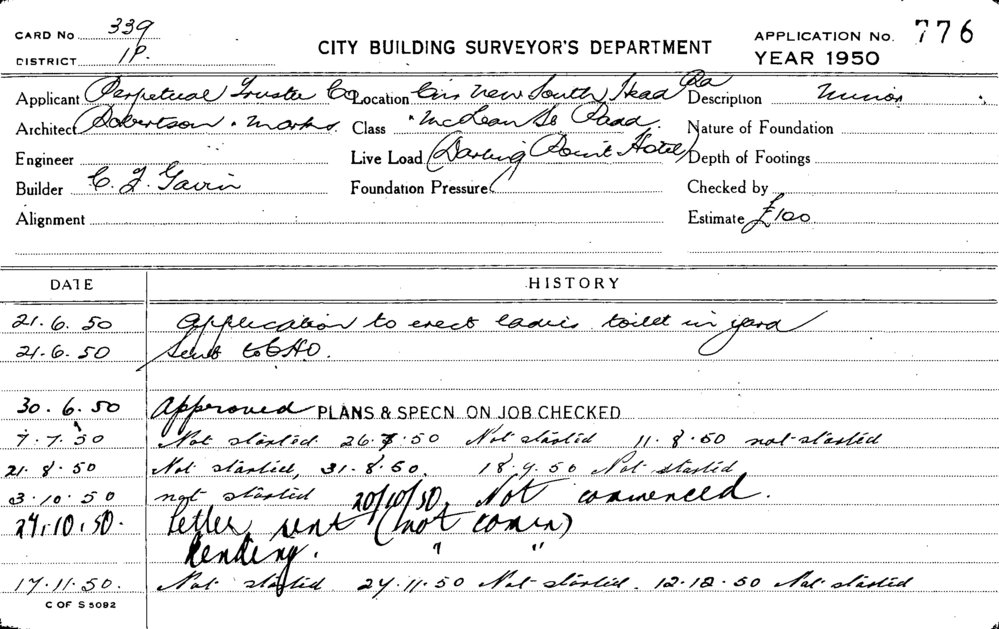 CARD No 339
DISTRICT 1P.
CITY BUILDING SURVEYOR'S DEPARTMENT
APPLICATION No. 776
YEAR 1950
Applicant Perpetual Trustee Co Location Cnr New South Head Rd Description Minor
Architect Robertson & Marks. Class "McLean St Padd. Nature of Foundation
Engineer Live Load (Darling Point Hotel) Depth of Footings
Builder C. J. Gavin Foundation Pressure Checked by
Alignment Estimate £100
DATE HISTORY
21.6.50 Application to erect ladies toilet in yard
21.6.50 Sent to CHO.
30.6.50 Approved PLANS & SPECN. ON JOB CHECKED
7.7.50 Not started 26.7.50 Not started 11.8.50 not started
21.8.50 Not started, 31.8.50. 18.9.50 Not started
3.10.50 not started 20/10/50. Not commenced.
24.10.50. Letter sent (not comm)
Pending. " "
17.11.50. Not started. 24.11.50 Not started. 12.12.50 Not started
C OF S 5092